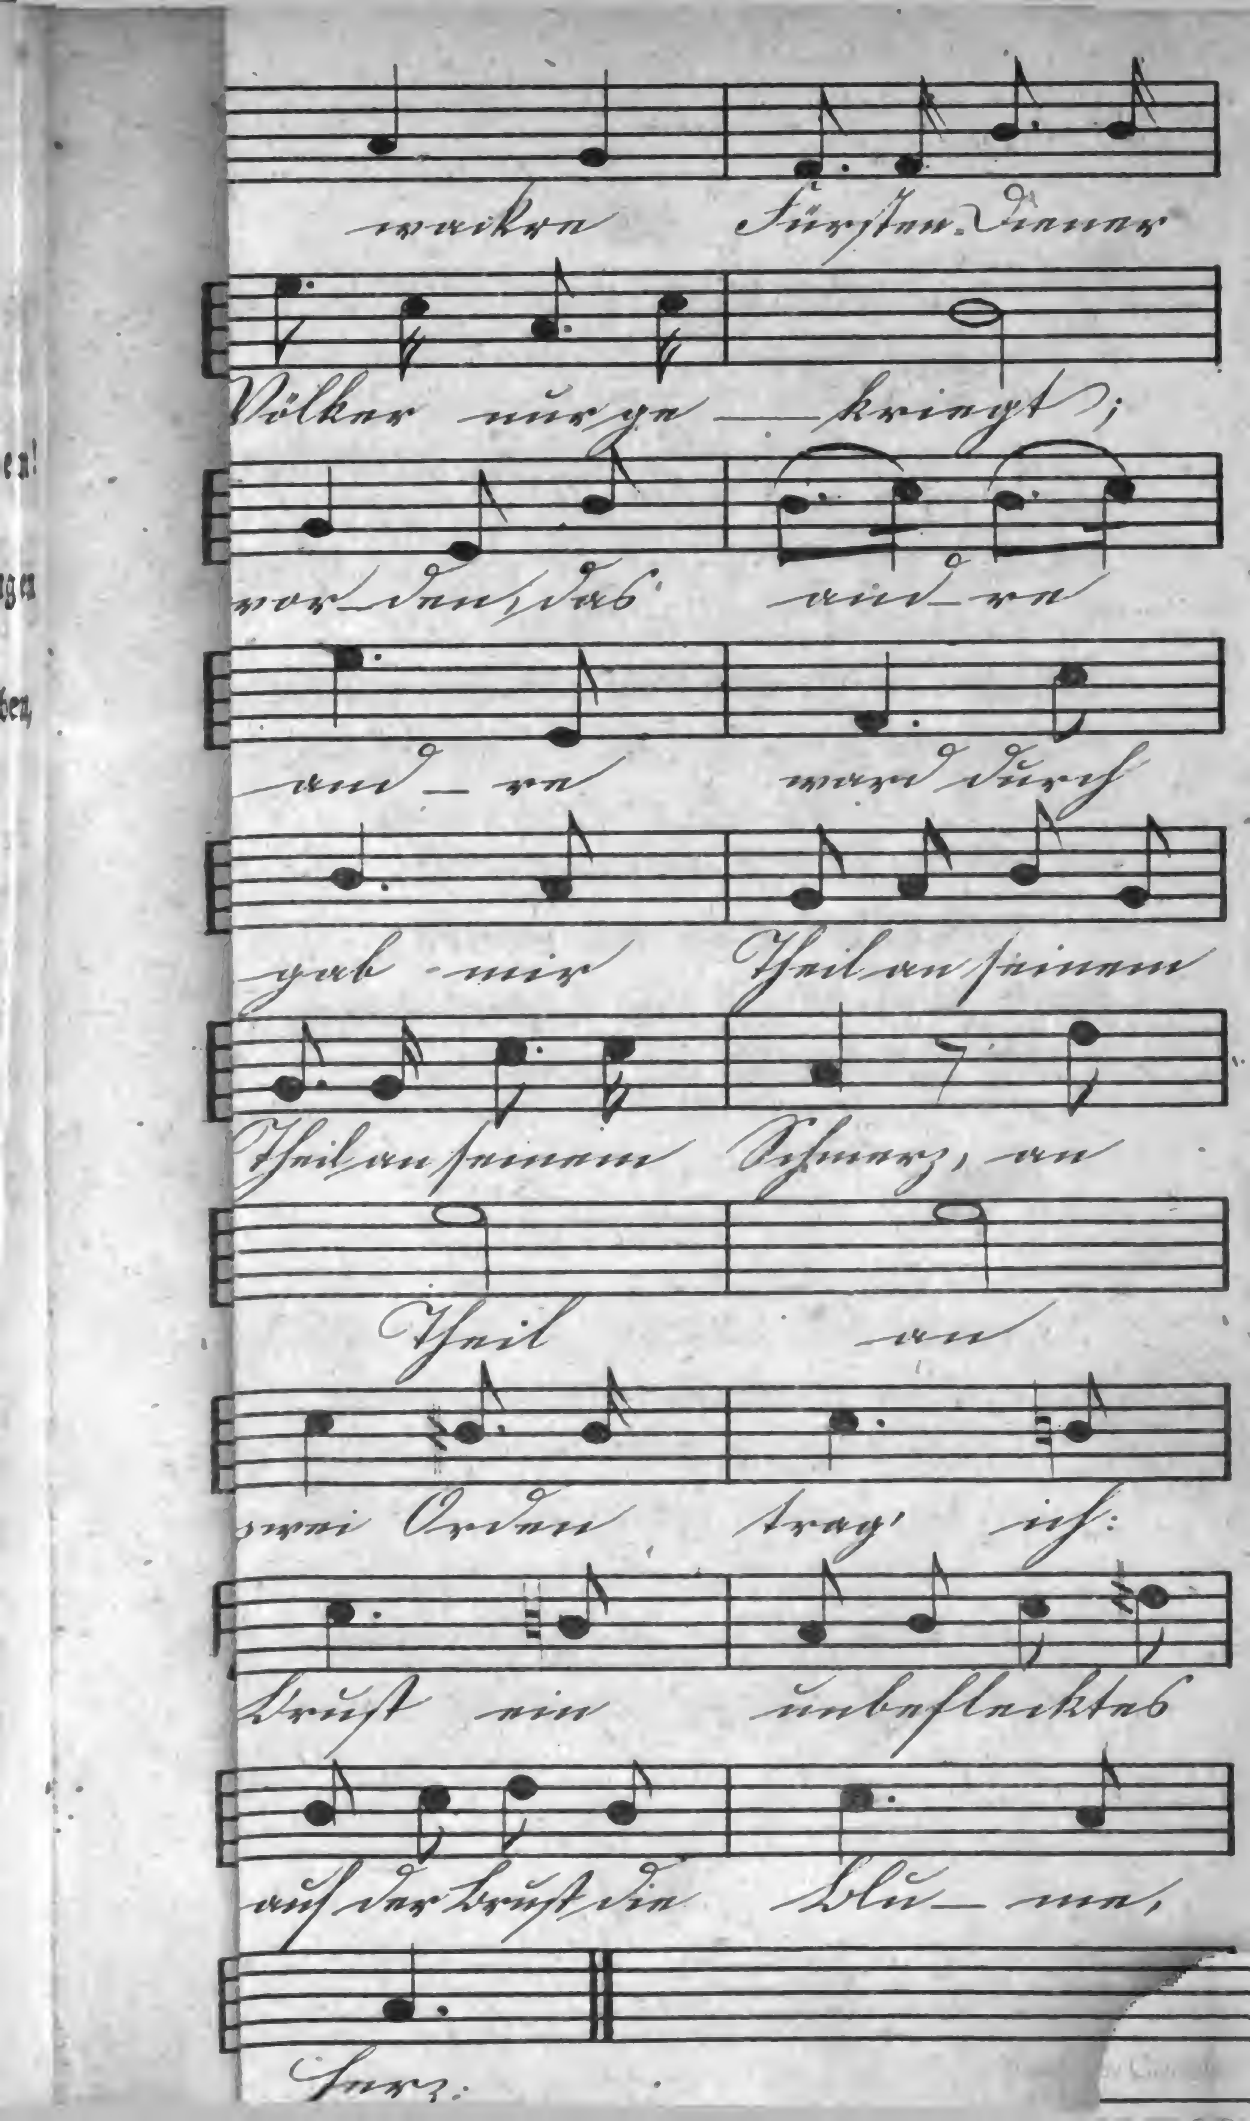 wackre Fürsten-Diener
Völker nur ge — kriegt;
en!
wor-den, das and-re
ngen
ben,
and - re ward durch
gab mir Theil an seinem
Theil an seinem Schmerz, an
Theil an
zwei Orden trag' ich:
Brust ein unbeflecktes
auf der Brust die Blu- me,
Herz: